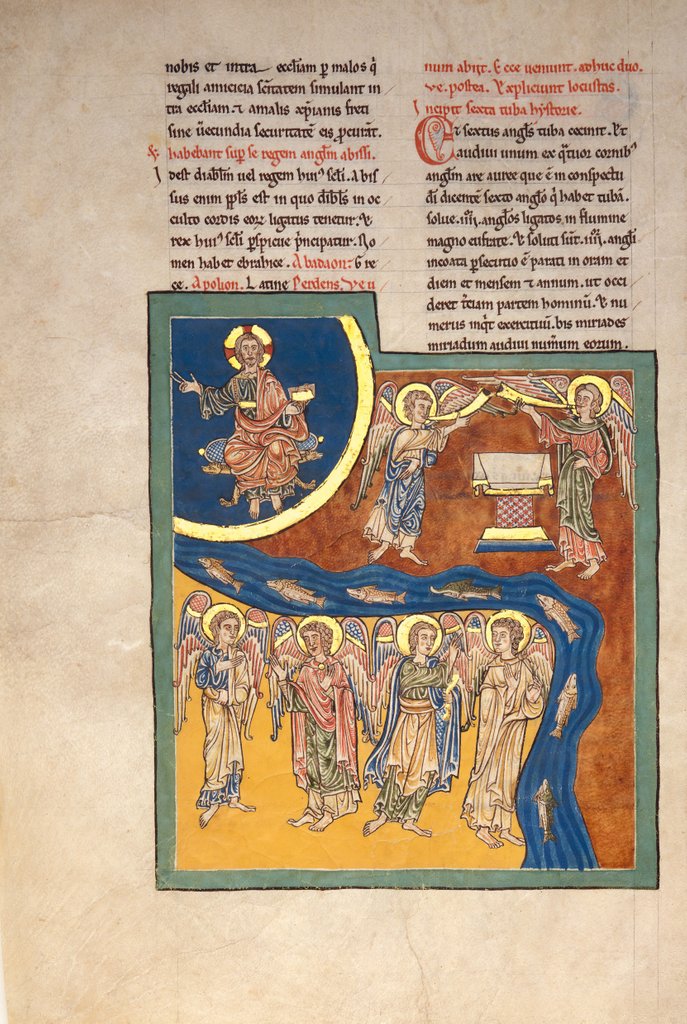 nobis et intra eccłiam p̱ malos q̇
regali amicicia sc̄itatem simulant in
tra eccłiam. ⁊ amalis xp̄ianis freti
sine uerecundia securitatē eis ꝓcurāt.
& habebant suꝑ se regem angłm abissi.
Idest diabłm uel regem hui᾽ scłi. Abis
sus enim ppłs est in quo diƀłs in oc
culto cordis eoꝝ ligatus tenetur. &
rex hui᾽ scłi ꝑspicue p̓ncipatur. No
men habet ebraice. Abadaon. Gre
ce. Apolion. Latine Perdens. Ve u
num abiit. Ecce ueniunt. adhuc duo.
ve. postea. Expliciunt locustas.
Incipit sexta tuba hystorie.
Et sextus angłs tuba cecinit. Et
audiui unum ex q̇tuor cornib᾽
angłm are auree que ē in conspectu
dī dicentē sexto angło q̓ habet tubā.
solue .IIII. angłos ligatos in flumine
magno eufrate. & soluti sūt .IIII. angłi
incoata ꝑsecutio ē parati in oram et
diem et mensem ⁊ annum. ut occi
deret t̓ciam partem hominū. & nu
merus inq̇t exercituū. bis miriades
miriadum audiui num̄um eorum.